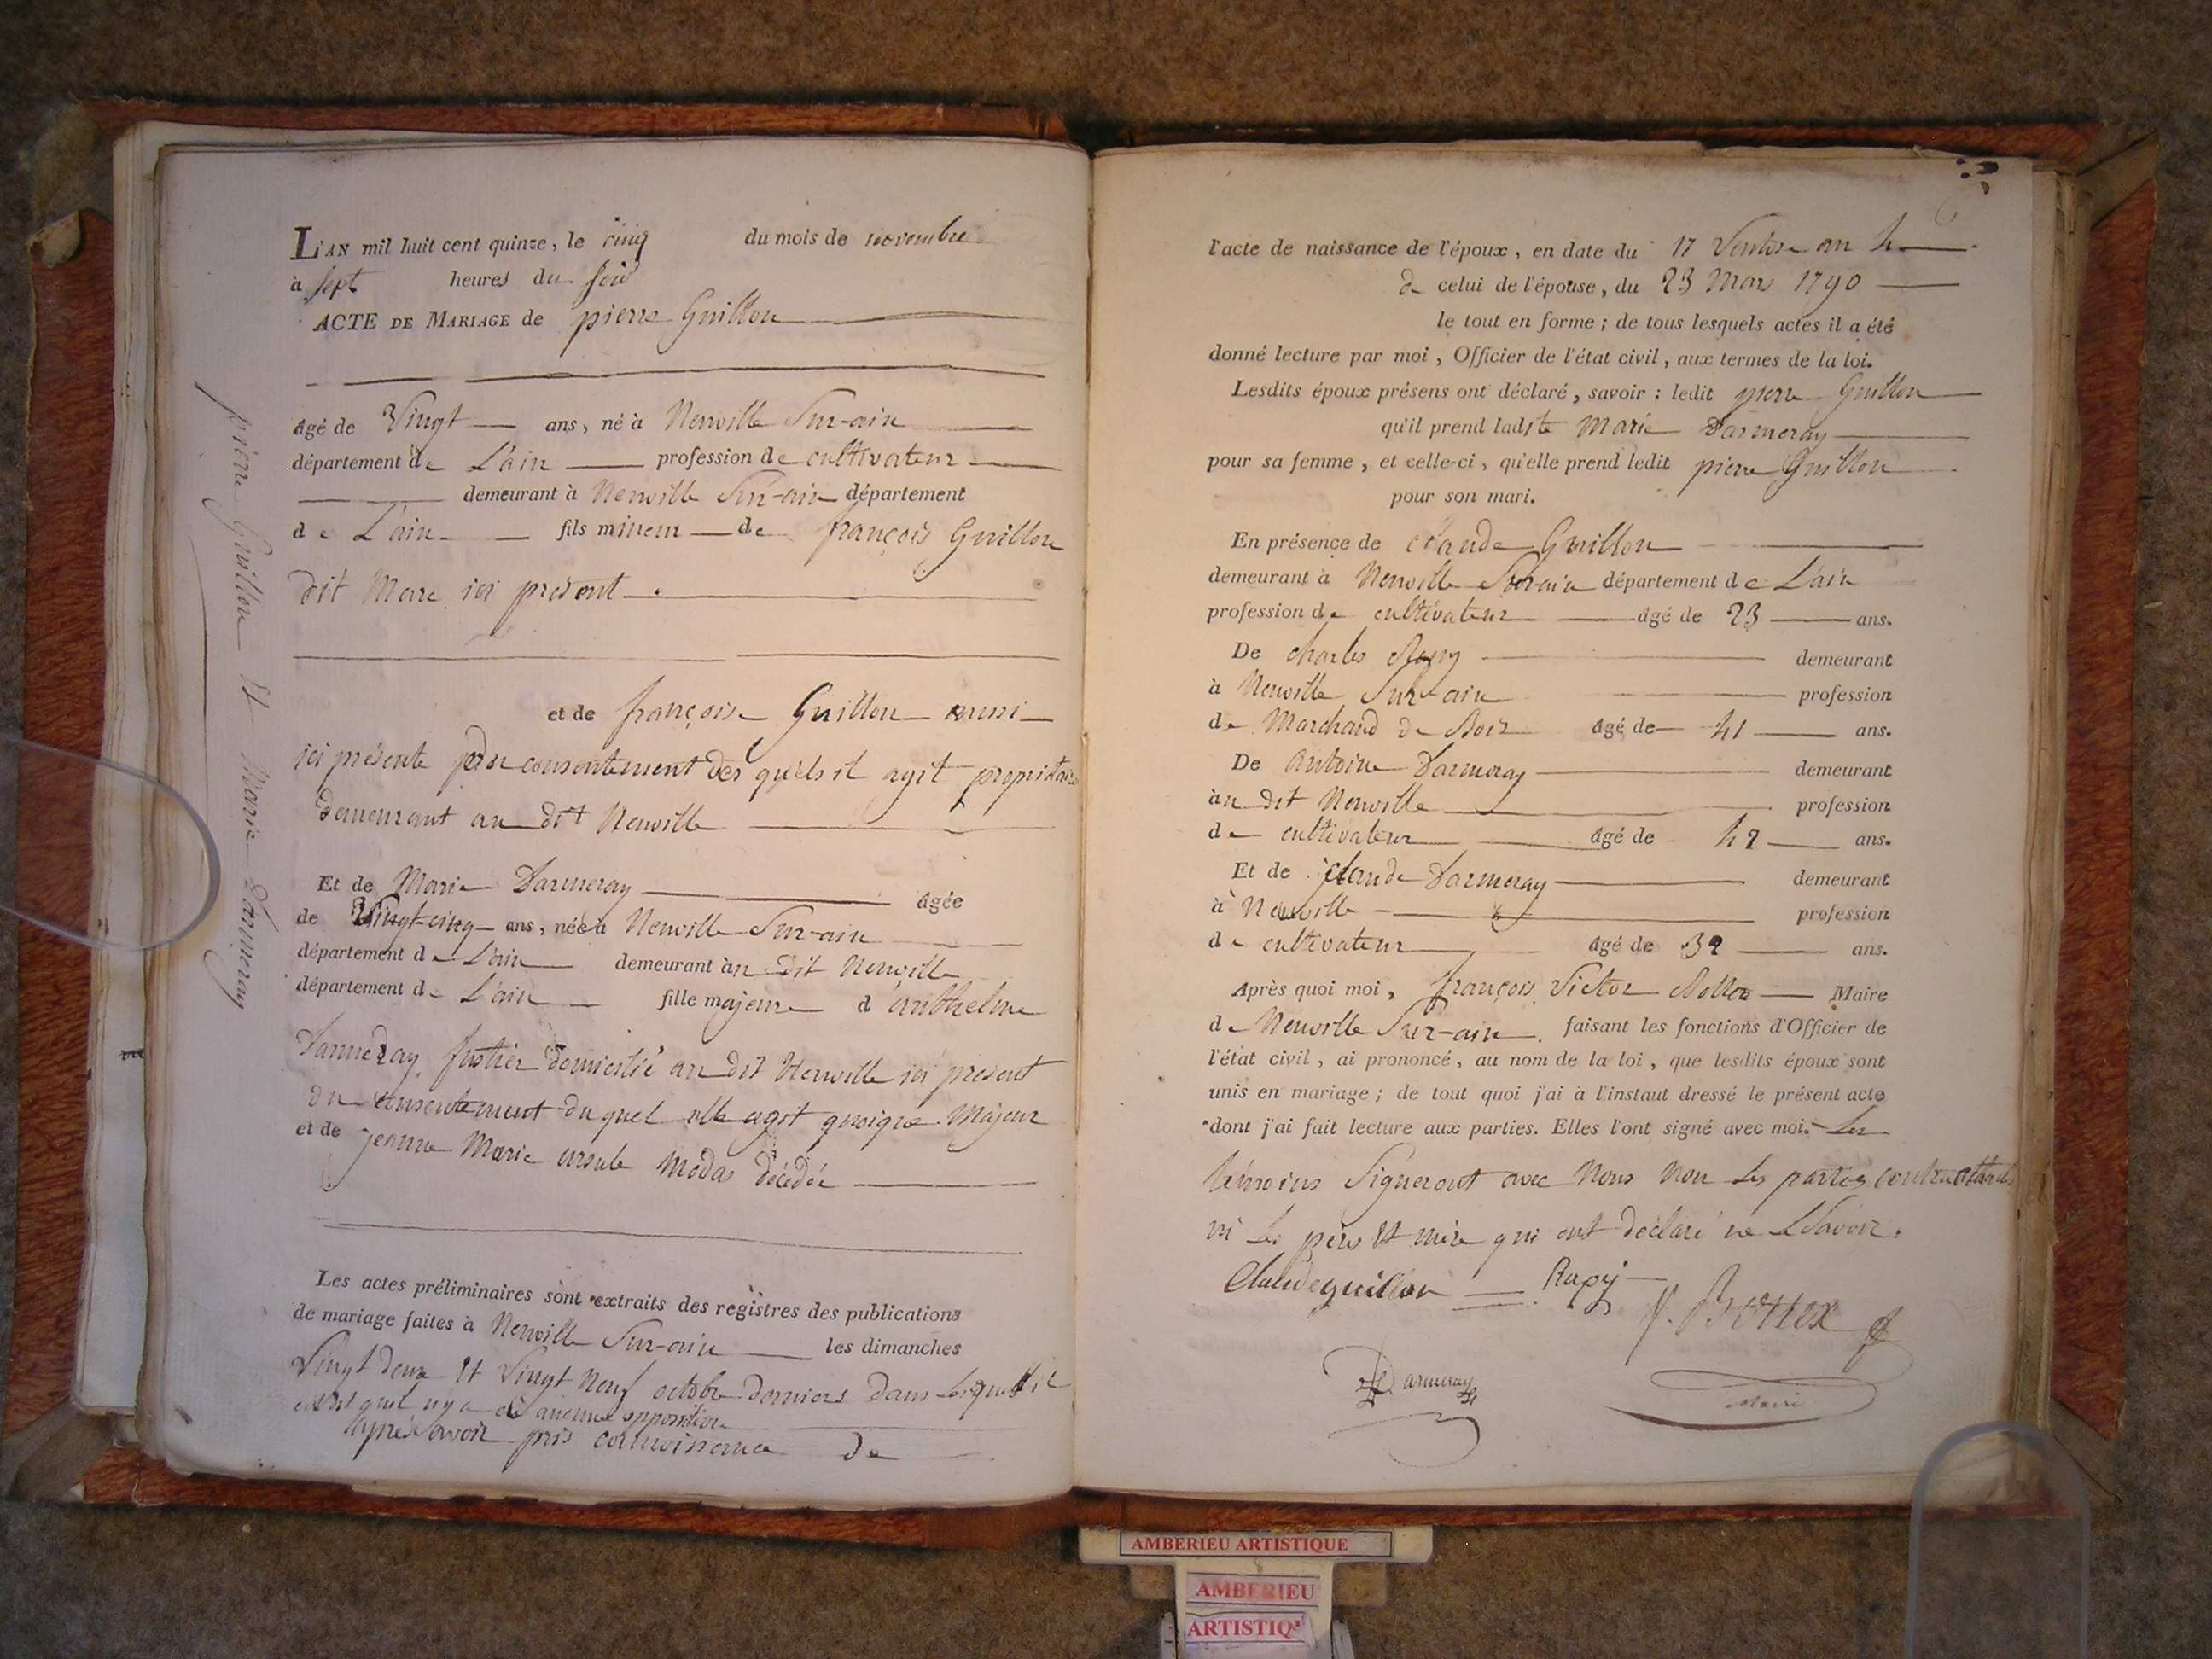 L'AN mil huit cent quinze, le cinq du mois de novembre
à sept heures du soir
ACTE DE MARIAGE de pierre Guillon
âgé de Vingt ans, né à Neuville Sur-ain
département de L'ain profession de cultivateur
demeurant à Neuville Sur-ain département
de L'ain fils mineur de françois Guillon
dit Marc ici présent
et de françoise Guillon aussi
ici présente du consentement des quels il agit propriétaires
demeurant au dit Neuville
Et de Marie Darmeray âgée
de Vingt-cinq ans, née à Neuville Sur-ain
département de L'ain demeurant au dit Neuville
département de L'ain fille majeure d'anthelme
Darmeray domicilié au dit Neuville ici présent
du consentement duquel elle agit quoique Majeur
et de jeanne Marie ursule décédée
Les actes préliminaires sont extraits des registres des publications
de mariage faites à Neuville Sur-ain les dimanches
Vingt deux et Vingt Neuf octobre derniers dans
qu'il n'y a eu aucune opposition
après avoir pris connoissance de
pierre Guillon et Marie Darmeray
l'acte de naissance de l'époux, en date du 17 Ventose an 4
de celui de l'épouse, du 23 Mars 1790
le tout en forme ; de tous lesquels actes il a été
donné lecture par moi, Officier de l'état civil, aux termes de la loi.
Lesdits époux présens ont déclaré, savoir : ledit pierre Guillon
qu'il prend ladite Marie Darmeray
pour sa femme, et celle-ci, qu'elle prend ledit pierre Guillon
pour son mari.
En présence de claude Guillon
demeurant à Neuville Sur-ain département de L'ain
profession de cultivateur âgé de 23 ans.
De charles demeurant
à Neuville Sur-ain profession
de Marchand de Bois âgé de 41 ans.
De antoine Darmeray demeurant
au dit Neuville profession
de cultivateur âgé de 42 ans.
Et de claude Darmeray demeurant
à Neuville profession
de cultivateur âgé de 32 ans.
Après quoi moi, françois Victor Bottex Maire
de Neuville Sur-ain faisant les fonctions d'Officier de
l'état civil, ai prononcé, au nom de la loi, que lesdits époux sont
unis en mariage ; de tout quoi j'ai à l'instant dressé le présent acte
dont j'ai fait lecture aux parties. Elles l'ont signé avec moi. Les
témoins Signeront avec Nous Non les parties contractantes
ni les pères et mère qui ont déclaré ne Savoir.
Claude guillon Rapy V. Bottex
Darmeray Maire
AMBERIEU ARTISTIQUE
AMBERIEU
ARTISTIQ